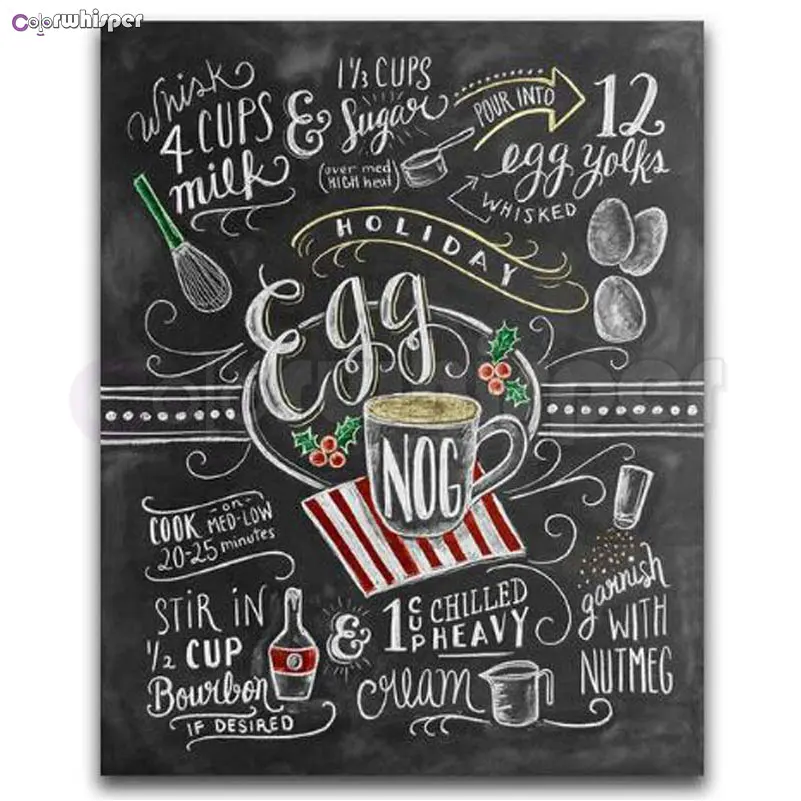 Colorwhisper
Whisk
4 CUPS
milk
&
1 1/3 CUPS
Sugar
(over med
HIGH heat)
POUR INTO
12
egg yolks
WHISKED
HOLIDAY
Egg
NOG
Colorwhisper
COOK -on- MED-LOW
20-25 minutes
STIR IN
1/2 CUP
Bourbon
IF DESIRED
&
1 CUP CHILLED
HEAVY
cream
garnish
WITH
NUTMEG